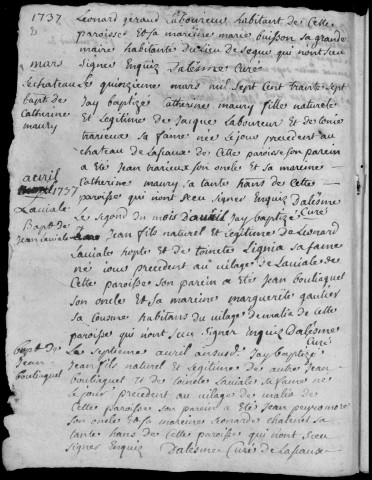 1737
Leonard geraud laboureur habitant de Cette
paroisse Et sa mareine marie buisson sa grande
maire habitante du lieu de segue qui nont sceu
mars
Signer Enquiz Dalesme Curé
le chateau
bapt de
Catherine
maury
Le quinzieme mars mil sept Cent trante sept
Jay baptizé Catherine maury fille naturele
Et Legitime de Jacque laboureur Et de
sa fame née le jour precedent au
chateau de Lafiaux de Cette paroisse son parein
a Eté Jean son oncle Et sa mareine
Catherine maury sa tante hans de Cette
paroisse qui nont sceu signer Enquiz Dalesme
Curé
avril
1737
Laviale
Bapt de
Jean laviale
Le segond du mois Davril Jay baptizé
Jean fils naturel et legitime de Leonard
Laviale hopte Et de toinete Lignia sa fame
né jour precedent au vilage de Laviale de
Cette paroisse son parein a Eté Jean boutinguet
son oncle Et sa mareine marguerite gautier
sa Cousine habitans du vilage de malia de cette
paroisse qui nont sceu signer Enquiz Dalesme
Curé
bapt de
Jean
boutinguet
Le septieme avril ansude Jay baptizé
Jean fils naturel et Legitime de autre Jean
boutinguet Et de toinete Laviale sa fame né
le jour precedent au vilage de malia de
Cette paroisse son parein a Eté Jean
son oncle Et sa mareine sa
tante hans de Cette paroisse qui nont sceu
signer Enquiz Dalesme Curé de Lafiaux